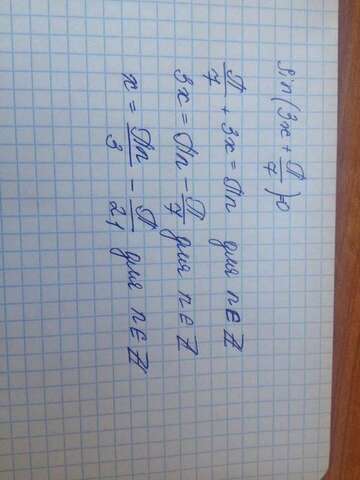 sin(3x + π/7)=0
π/7 + 3x = πn для n∈Z
3x = πn - π/7 для n∈Z
x = πn/3 - π/21 для n∈Z